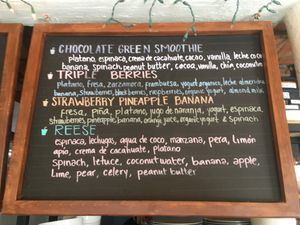 CHOCOLATE GREEN SMOOTHIE
platano, espinaca, crema de cacahuate, cacao, vanilla, leche coco
banana, spinach, peanut butter, cacao, vanilla, chia, coconut
TRIPLE BERRIES
platano, fresa, zarzamora, frambuesa, yogurt organico, leche almendra
banana, strawberries, blackberries, raspberries, organic yogurt, almond milk
STRAWBERRY PINEAPPLE BANANA
fresa, piña, platano, jugo de naranja, yogurt, espinaca,
strawberries, pineapple, banana, orange juice, organic yogurt & spinach
REESE
espinaca, lechuga, agua de coco, manzana, pera, limón
apio, crema de cacahuate, platano
Spinach, letuce, coconut water, banana, apple,
lime, pear, celery, peanut butter